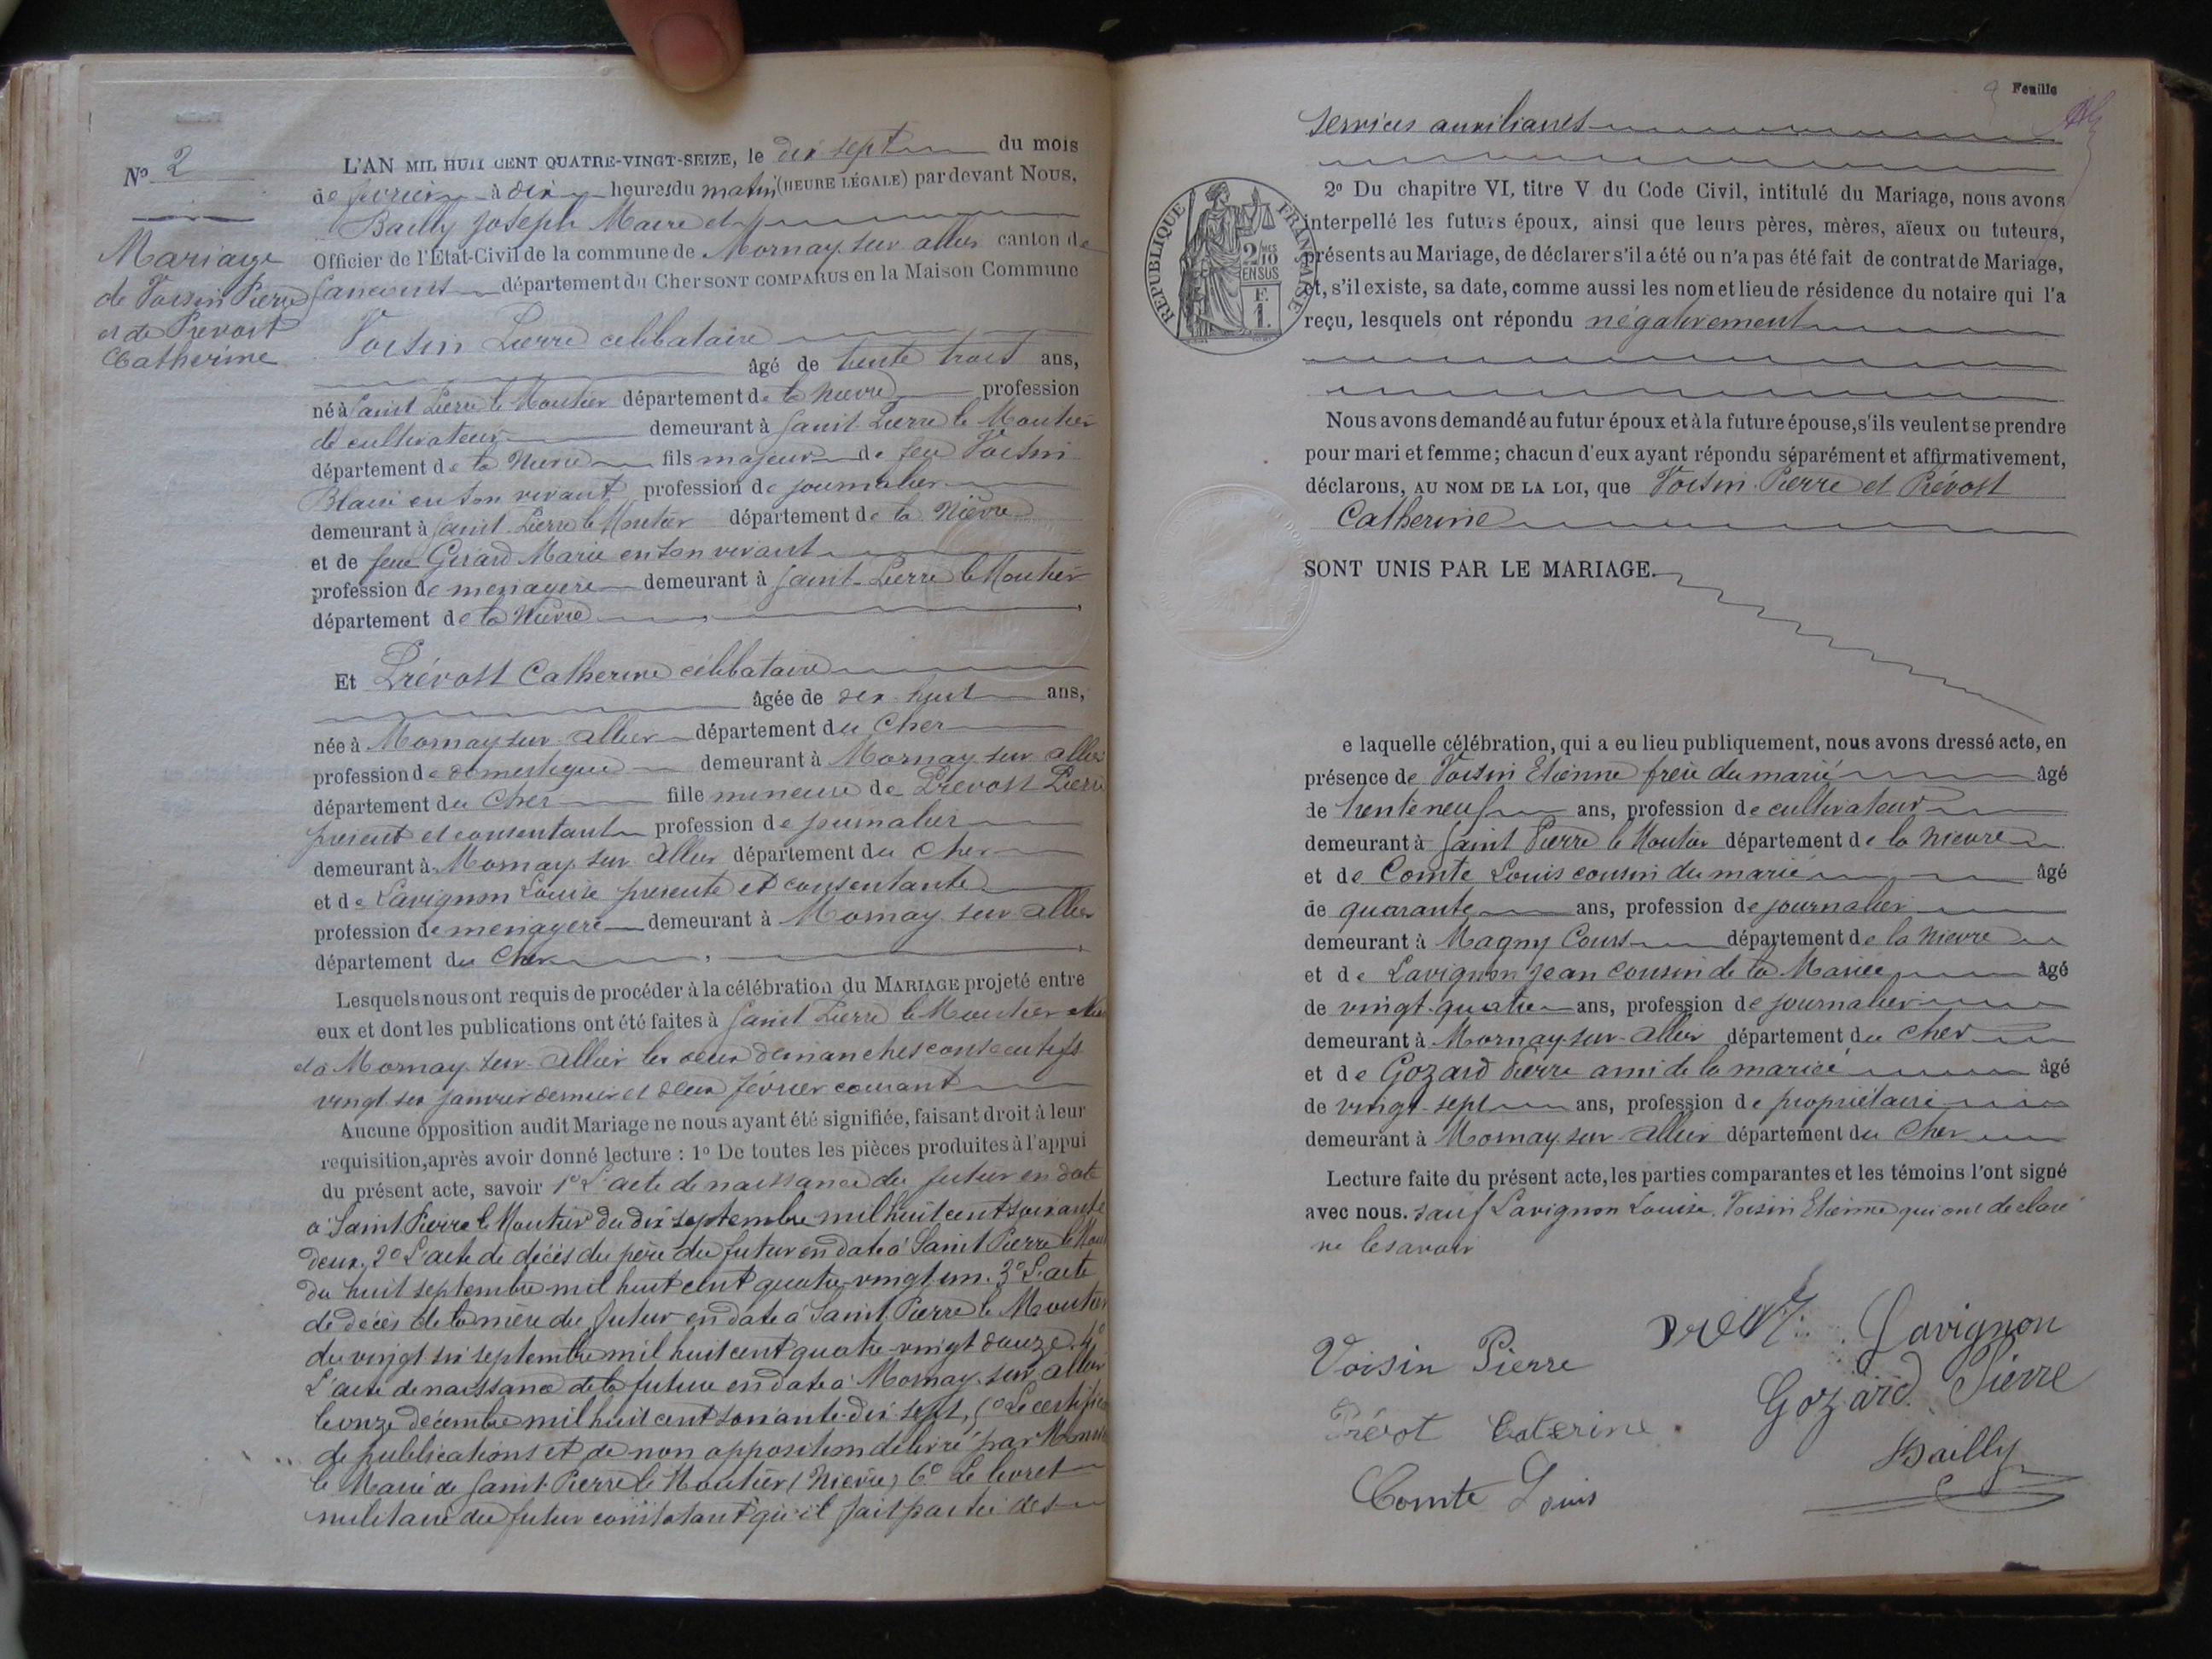 Nº 2
Mariage
de Voisin Pierre
et de Prévost
Catherine
L'AN MIL HUIT CENT QUATRE-VINGT-SEIZE, le dix sept du mois
de février à dix heures du matin (HEURE LÉGALE) par devant Nous,
Bailly Joseph Maire et
Officier de l'État-Civil de la commune de Mornay sur allier canton de
Sancoins département du Cher SONT COMPARUS en la Maison Commune
Voisin Pierre célibataire
âgé de trente trois ans,
né à Saint Pierre le Moutier département de la Nièvre profession
de cultivateur demeurant à Saint Pierre le Moutier
département de la Nièvre fils majeur de feu Voisin
en son vivant profession de journalier
demeurant à Saint Pierre le Moutier département de la Nièvre
et de feue Girard Marie en son vivant
profession de menagère demeurant à Saint-Pierre le Moutier
département de la Nièvre
Et Prévost Catherine célibataire
âgée de dix-huit ans,
née à Mornay sur allier département du Cher
profession de domestique demeurant à Mornay sur allier
département du Cher fille mineure de Prévost Pierre
présent et consentant profession de journalier
demeurant à Mornay sur Allier département du Cher
et de Lavignon Louise présente et consentante
profession de menagère demeurant à Mornay sur allier
département du Cher
Lesquels nous ont requis de procéder à la célébration du MARIAGE projeté entre
eux et dont les publications ont été faites à Saint Pierre le Moutier
et à Mornay sur Allier les deux dimanches consécutifs
vingt six janvier dernier et deux février courant
Aucune opposition audit Mariage ne nous ayant été signifiée, faisant droit à leur
requisition, après avoir donné lecture : 1º De toutes les pièces produites à l'appui
du présent acte, savoir 1º L'acte de naissance du futur en date
à Saint Pierre le Moutier du dix septembre mil huit cent soixante
deux, 2º L'acte de décès du père du futur en date à Saint Pierre le Mout
du huit septembre mil huit cent quatre-vingt un. 3º L'acte
de décès de la mère du futur en date à Saint Pierre le Moutier
du vingt six septembre mil huit cent quatre-vingt douze. 4º
L'acte de naissance de la future en date à Mornay sur allier
le onze décembre mil huit cent soixante-dix-sept, 5º Le certificat
de publications et de non opposition délivré par
le Maire de Saint Pierre le Moutier (Nièvre) 6º Le livret
militaire du futur constatant qu'il fait partie des
Feuille
services auxiliaires
RÉPUBLIQUE FRANÇAISE
2/10 MES
EN SUS
F.
1.
2º Du chapitre VI, titre V du Code Civil, intitulé du Mariage, nous avons
interpellé les futurs époux, ainsi que leurs pères, mères, aïeux ou tuteurs,
présents au Mariage, de déclarer s'il a été ou n'a pas été fait de contrat de Mariage,
et, s'il existe, sa date, comme aussi les nom et lieu de résidence du notaire qui l'a
reçu, lesquels ont répondu négativement
Nous avons demandé au futur époux et à la future épouse, s'ils veulent se prendre
pour mari et femme; chacun d'eux ayant répondu séparément et affirmativement,
déclarons, AU NOM DE LA LOI, que Voisin Pierre et Prévost
Catherine
SONT UNIS PAR LE MARIAGE.
e laquelle célébration, qui a eu lieu publiquement, nous avons dressé acte, en
présence de Voisin Etienne frère du marié âgé
de trente neuf ans, profession de cultivateur
demeurant à Saint Pierre le Moutier département de la Nièvre
et de Comte Louis cousin du marié âgé
de quarante ans, profession de journalier
demeurant à Magny Cours département de la Nièvre
et de Lavignon Jean cousin de la Mariée âgé
de vingt-quatre ans, profession de journalier
demeurant à Mornay-sur-Allier département du Cher
et de Gozard Pierre ami de la mariée âgé
de vingt-sept ans, profession de propriétaire
demeurant à Mornay sur-allier département du Cher
Lecture faite du présent acte, les parties comparantes et les témoins l'ont signé
avec nous. sauf Lavignon Louise, Voisin Etienne qui ont déclaré
ne le savoir
Voisin Pierre
Lavignon
Prévot Caterine
Gozard Pierre
Comte Louis
Bailly